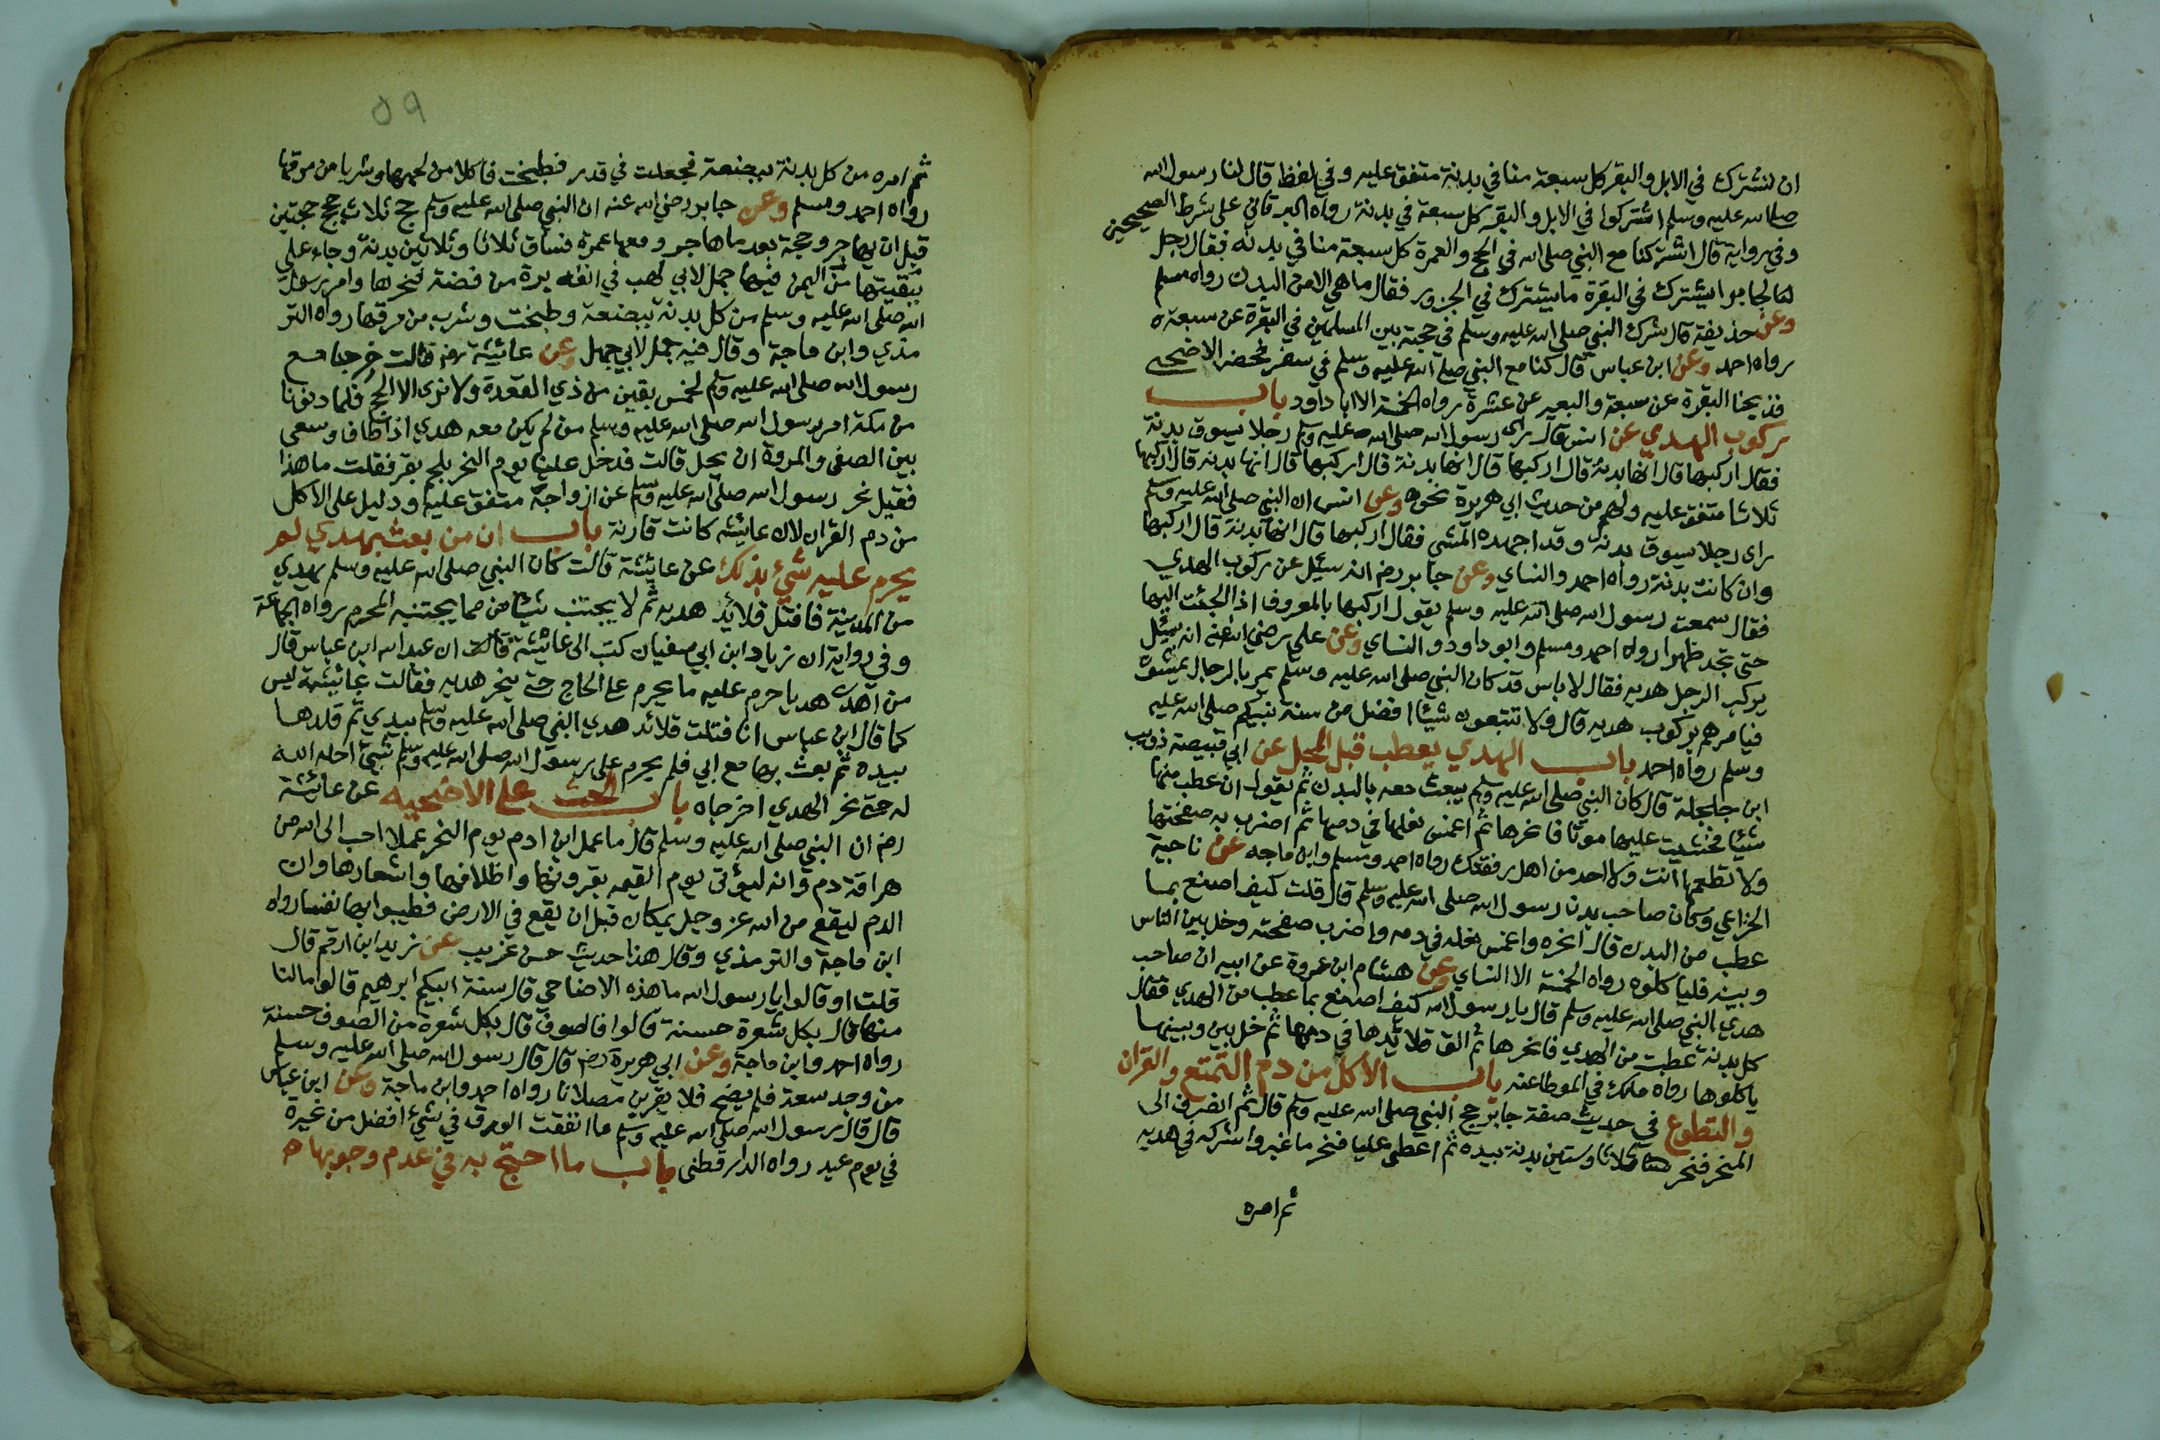 ان نشترك في الابل والبقر كل سبعة منا في بدنة متفق عليه وفي لفظ قال لنا رسول الله
صلى الله عليه وسلم اشتركوا في الابل والبقر كل سبعة في بدنة رواه البرقاني على شرط الصحيحين
وفي رواية قال اشتركنا مع النبي صلى الله في الحج والعمرة كل سبعة منا في بدنه فقال رجل
لجابر ايشترك في البقرة ما يشترك في الجزور فقال ما هي الا من البدن رواه مسلم
وعن حذيفة قال شرك النبي صلى الله عليه وسلم في حجته بين المسلمين في البقرة عن سبعة ه
رواه احمد وعن ابن عباس قال كنا مع النبي صلى الله عليه وسلم في سفر فحضر الاضحى
فذبحنا البقرة عن سبعة والبعير عن عشرة رواه الخمسة الا ابا داود باب
ركوب الهدي عن انس قال راى رسول الله صلى الله عليه وسلم رجلا يسوق بدنة
فقال اركبها قال انها بدنة قال اركبها قال انها بدنة قال اركبها قال انها بدنه قال اركبها
ثلاثا متفق عليه ولهم من حديث ابي هريرة نحوه وعن انس ان النبي صلى الله عليه وسلم
راى رجلا يسوق بدنة وقد اجهده المشي فقال اركبها قال انها بدنة قال اركبها
وان كانت بدنة رواه احمد والنساي وعن جابر رضي انه سئل عن ركوب الهدي
فقال سمعت رسول الله صلى الله عليه وسلم يقول اركبها بالمعروف اذا الجئت اليها
حتى تجد ظهرا رواه احمد ومسلم وابو داود والنساي وعن علي رضي الله عنه انه سئل
يركب الرجل هديه فقال لا باس قد كان النبي صلى الله عليه وسلم يمر بالرجال يمشون
فيامرهم بركوب هديه قال ولا تتبعون شيئا افضل من سنة نبيكم صلى الله عليه
وسلم رواه احمد باب الهدي يعطب قبل المحل عن ابي قبيصة ذويب
ابن حلحلة قال كان النبي صلى الله عليه وسلم يبعث معه بالبدن ثم يقول ان عطب منها
شيئا فخشيت عليها موتا فانحرها ثم اغمس نعلها في دمها ثم اضرب به صفحتها
ولا تطعمها انت ولا احد من اهل رفقتك رواه احمد ومسلم وابن ماجه عن ناجية
الخزاعي وكان صاحب بدن رسول الله صلى الله عليه وسلم قال قلت كيف اصنع بما
عطب من البدن قال انحره واغمس نعله في دمه واضرب صفحته وخل بين الناس
وبينه فلياكلوه رواه الخمسة الا النساي وعن هشام ابن عروة عن ابيه ان صاحب
هدي النبي صلى الله عليه وسلم قال يا رسول الله كيف اصنع بما عطب من الهدي فقال
كل بدنة عطبت من الهدي فانحرها ثم الق قلائدها في دمها ثم خل بين وبينها
ياكلوها رواه ملك في الموطا عنه باب الاكل من دم التمتع والقران
والتطوع في حديث صفة جابر حج النبي صلى الله عليه وسلم قال ثم انصرف الى
المنحر فنحر ثلاثا وستين بدنة بيده ثم اعطى عليا فنحر ما غبر واشركه في هديه
ثم امره
٥٩
ثم امره من كل بدنة ببضعة فجعلت في قدر فطبخت فاكلا من لحمها وشربا من مرقها
رواه احمد ومسلم وعن جابر رضي الله عنه ان النبي صلى الله عليه وسلم حج ثلاث حجج حجتين
قبل ان يهاجر وحجة بعد ما هاجر ومعها عمرة فساق ثلاثا وثلاثين بدنة وجاء علي
ببقيتها من اليمن فيها جمل لابي لهب في انفه برة من فضة فنحرها وامر رسول
الله صلى الله عليه وسلم من كل بدنة ببضعة وطبخت وشرب من مرقها رواه التر
مذي وابن ماجة وقال فيه جمل لابي جهل وعن عائشة رض قالت خرجنا مع
رسول الله صلى الله عليه وسلم لخمس بقين من ذي القعدة ولا نرى الا الحج فلما دنونا
من مكة امر رسول الله صلى الله عليه وسلم من لم يكن معه هدي اذا طاف وسعى
بين الصفى والمروة ان يحل قالت فدخل علينا يوم النحر بلحم بقر فقلت ما هذا
فقيل نحر رسول الله صلى الله عليه وسلم عن ازواجه متفق عليه ودليل على الاكل
من دم القران لان عائشه كانت قارنة باب ان من بعث بهدي لم
يحرم عليه شيئ بذلك عن عائشة قالت كان النبي صلى الله عليه وسلم يهدي
من المدينة فافتل قلائد هديه ثم لا يجتنب شيئا من مما يجتنبه المحرم رواه الجماعة
وفي رواية ان زياد ابن ابي سفيان كتب الى عائشة قالت ان عبد الله ابن عباس قال
من اهدى هديا حرم عليه ما يحرم على الحاج حتى ينحر هديه فقالت عائشة ليس
كما قال ابن عباس انا فتلت قلائد هدي النبي صلى الله عليه وسلم بيدي ثم قلدها
بيده ثم بعث بها مع ابي فلم يحرم على رسول الله صلى الله عليه وسلم شيئ احله الله
له حتى نحر الهدي اخرجاه باب الحث على الاضحيه عن عائشة
رض ان النبي صلى الله عليه وسلم قال ما عمل ابن ادم يوم النحر عملا احب الى الله من
هراقة دم وانه ليؤتى يوم القيمه بقرونها واظلافها واشعارها وان
الدم ليقع من الله عز وجل بمكان قبل ان يقع في الارض فطيبوا بها نفسا رواه
ابن ماجة والترمذي وقال هذا حديث حسن غريب عن زيد ابن ارقم قال
قلت او قالوا يا رسول الله ما هذه الاضاحي قال سنة ابيكم ابرهيم قالوا مالنا
منها قال بكل شعرة حسنة قالوا فالصوف قال بكل شعرة من الصوف حسنة
رواه احمد وابن ماجة وعن ابي هريرة رض قال قال رسول الله صلى الله عليه وسلم
من وجد سعة فلم يضح فلا يقربن مصلانا رواه احمد وابن ماجة وعن ابن عباس
قال قال رسول الله صلى الله عليه وسلم ما انفقت الورق في شيئ افضل من نحيرة
في يوم عيد رواه الدارقطنى باب ما احتج به في عدم وجوبها ه